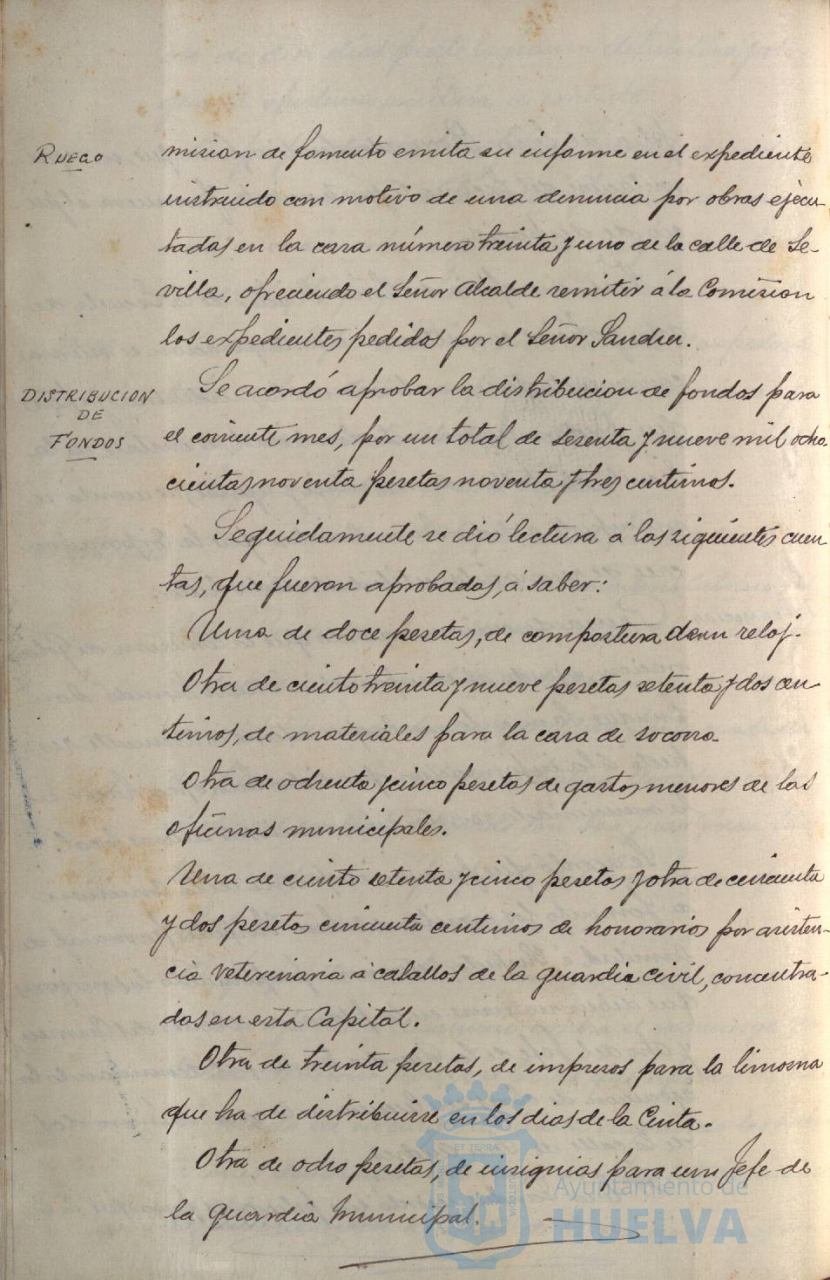 RUEGO
mision de fomento emita su informe en el expediente
instruido con motivo de una denuncia por obras ejecu-
tadas en la casa número treinta y uno de la calle de Se-
villa, ofreciendo el Señor Alcalde remitir á la Comision
los expedientes pedidos por el Señor
DISTRIBUCION
DE
FONDOS
Se acordó aprobar la distribucion de fondos para
el corriente mes, por un total de sesenta y nueve mil ocho
cientas noventa pesetas noventa y tres centimos.
Seguidamente se dió lectura á las siguientes cuen
tas, que fueron aprobadas, á saber:
Una de doce pesetas, de compostura de un reloj.
Otra de ciento treinta y nueve pesetas setenta y dos cen-
timos, de materiales para la casa de socorro.
Otra de ochenta y cinco pesetas de gastos menores de las
oficinas municipales.
Una de ciento setenta y cinco pesetas y otra de cincuenta
y dos pesetas cincuenta centimos de honorarios por asisten-
cia veterinaria á caballos de la guardia civil, concentra-
dos en esta Capital.
Otra de treinta pesetas, de impresos para la limosna
que ha de distribuirse en los dias de la Cinta.
Otra de ocho pesetas, de insignias para un Jefe de
la guardia Municipal.
Ayuntamiento de
HUELVA